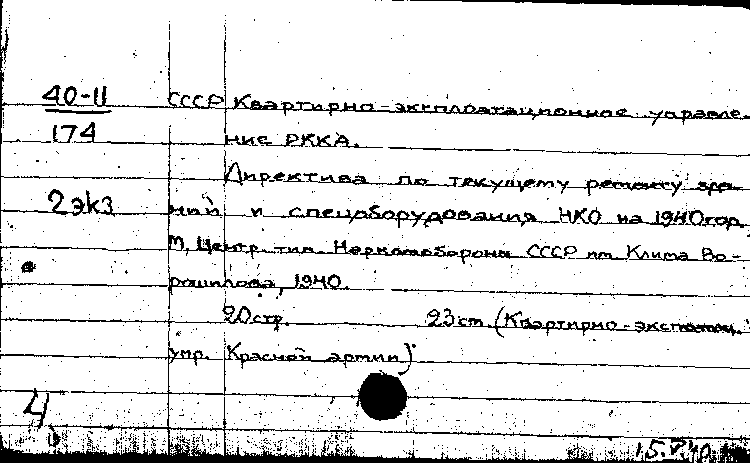 40-11
174
СССР Квартирно-эксплоатационное управле-
ние РККА.
Директива по текущему ремонту зда-
2 экз
ний и спецоборудования НКО на 1940 год
М, Центр. тип. Наркомоборони СССР им. Клима Во-
рошилова, 1940.
20 стр. 23 ст. (Квартирно-эксплоат.
упр. Красной армии)
4